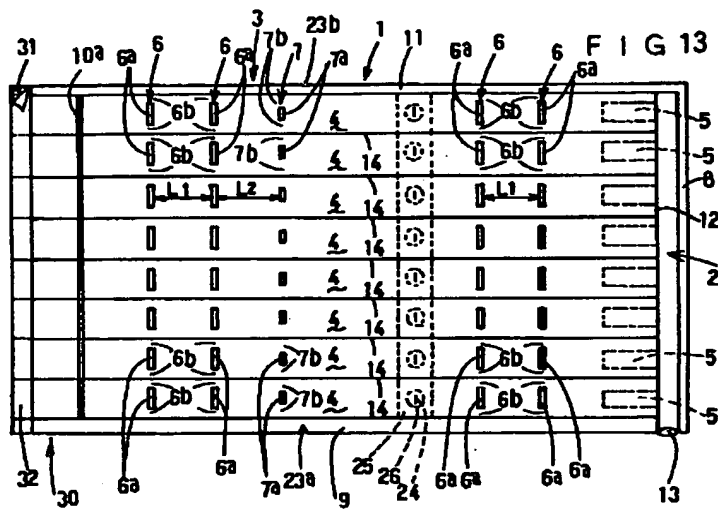 FIG 13
31 10a 6a 6 6 6a 3 7b 23b 7 7a 1 11 6a 6 6 6a
6b 4 1 6b 5
6b 7b 4 14 1 6b 5 8
L1 L2 4 14 1 L1 12
4 14 1 2
4 14 1
4 14 1
6b 7b 4 14 1 6b 5
6b 7b 4 14 1 6b 5
32 30 6a 6a 7a 23a 9 25 26 24 6a 6a 6a 6a 13